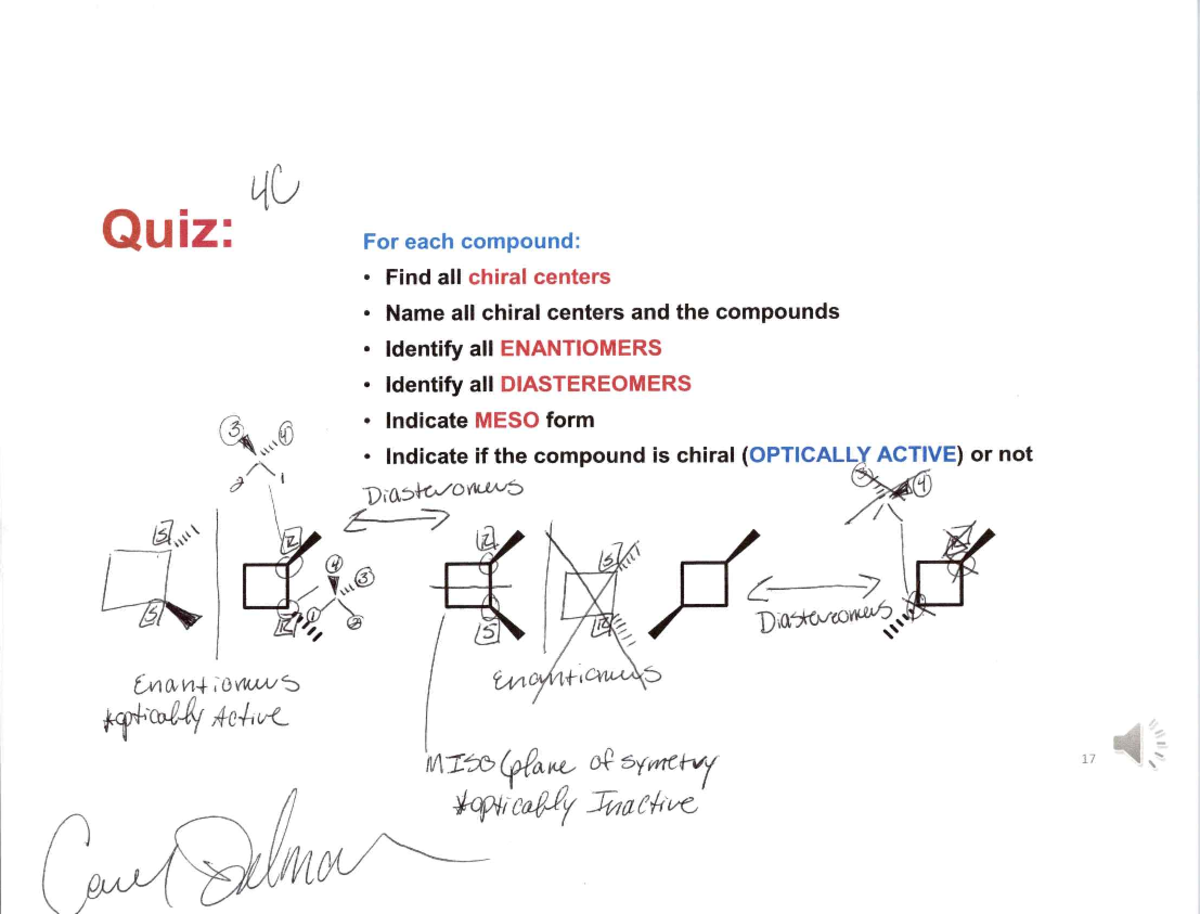 4C
Quiz:
For each compound:
• Find all chiral centers
• Name all chiral centers and the compounds
• Identify all ENANTIOMERS
• Identify all DIASTEREOMERS
• Indicate MESO form
• Indicate if the compound is chiral (OPTICALLY ACTIVE) or not
3 4
2 1
3 4
Diasteromers
S R R S
4 3
1 2
S R S R
Diastereomers
Enantiomers
*optically Active
Enantiomers
MISO (plane of symetry
*optically Inactive
17